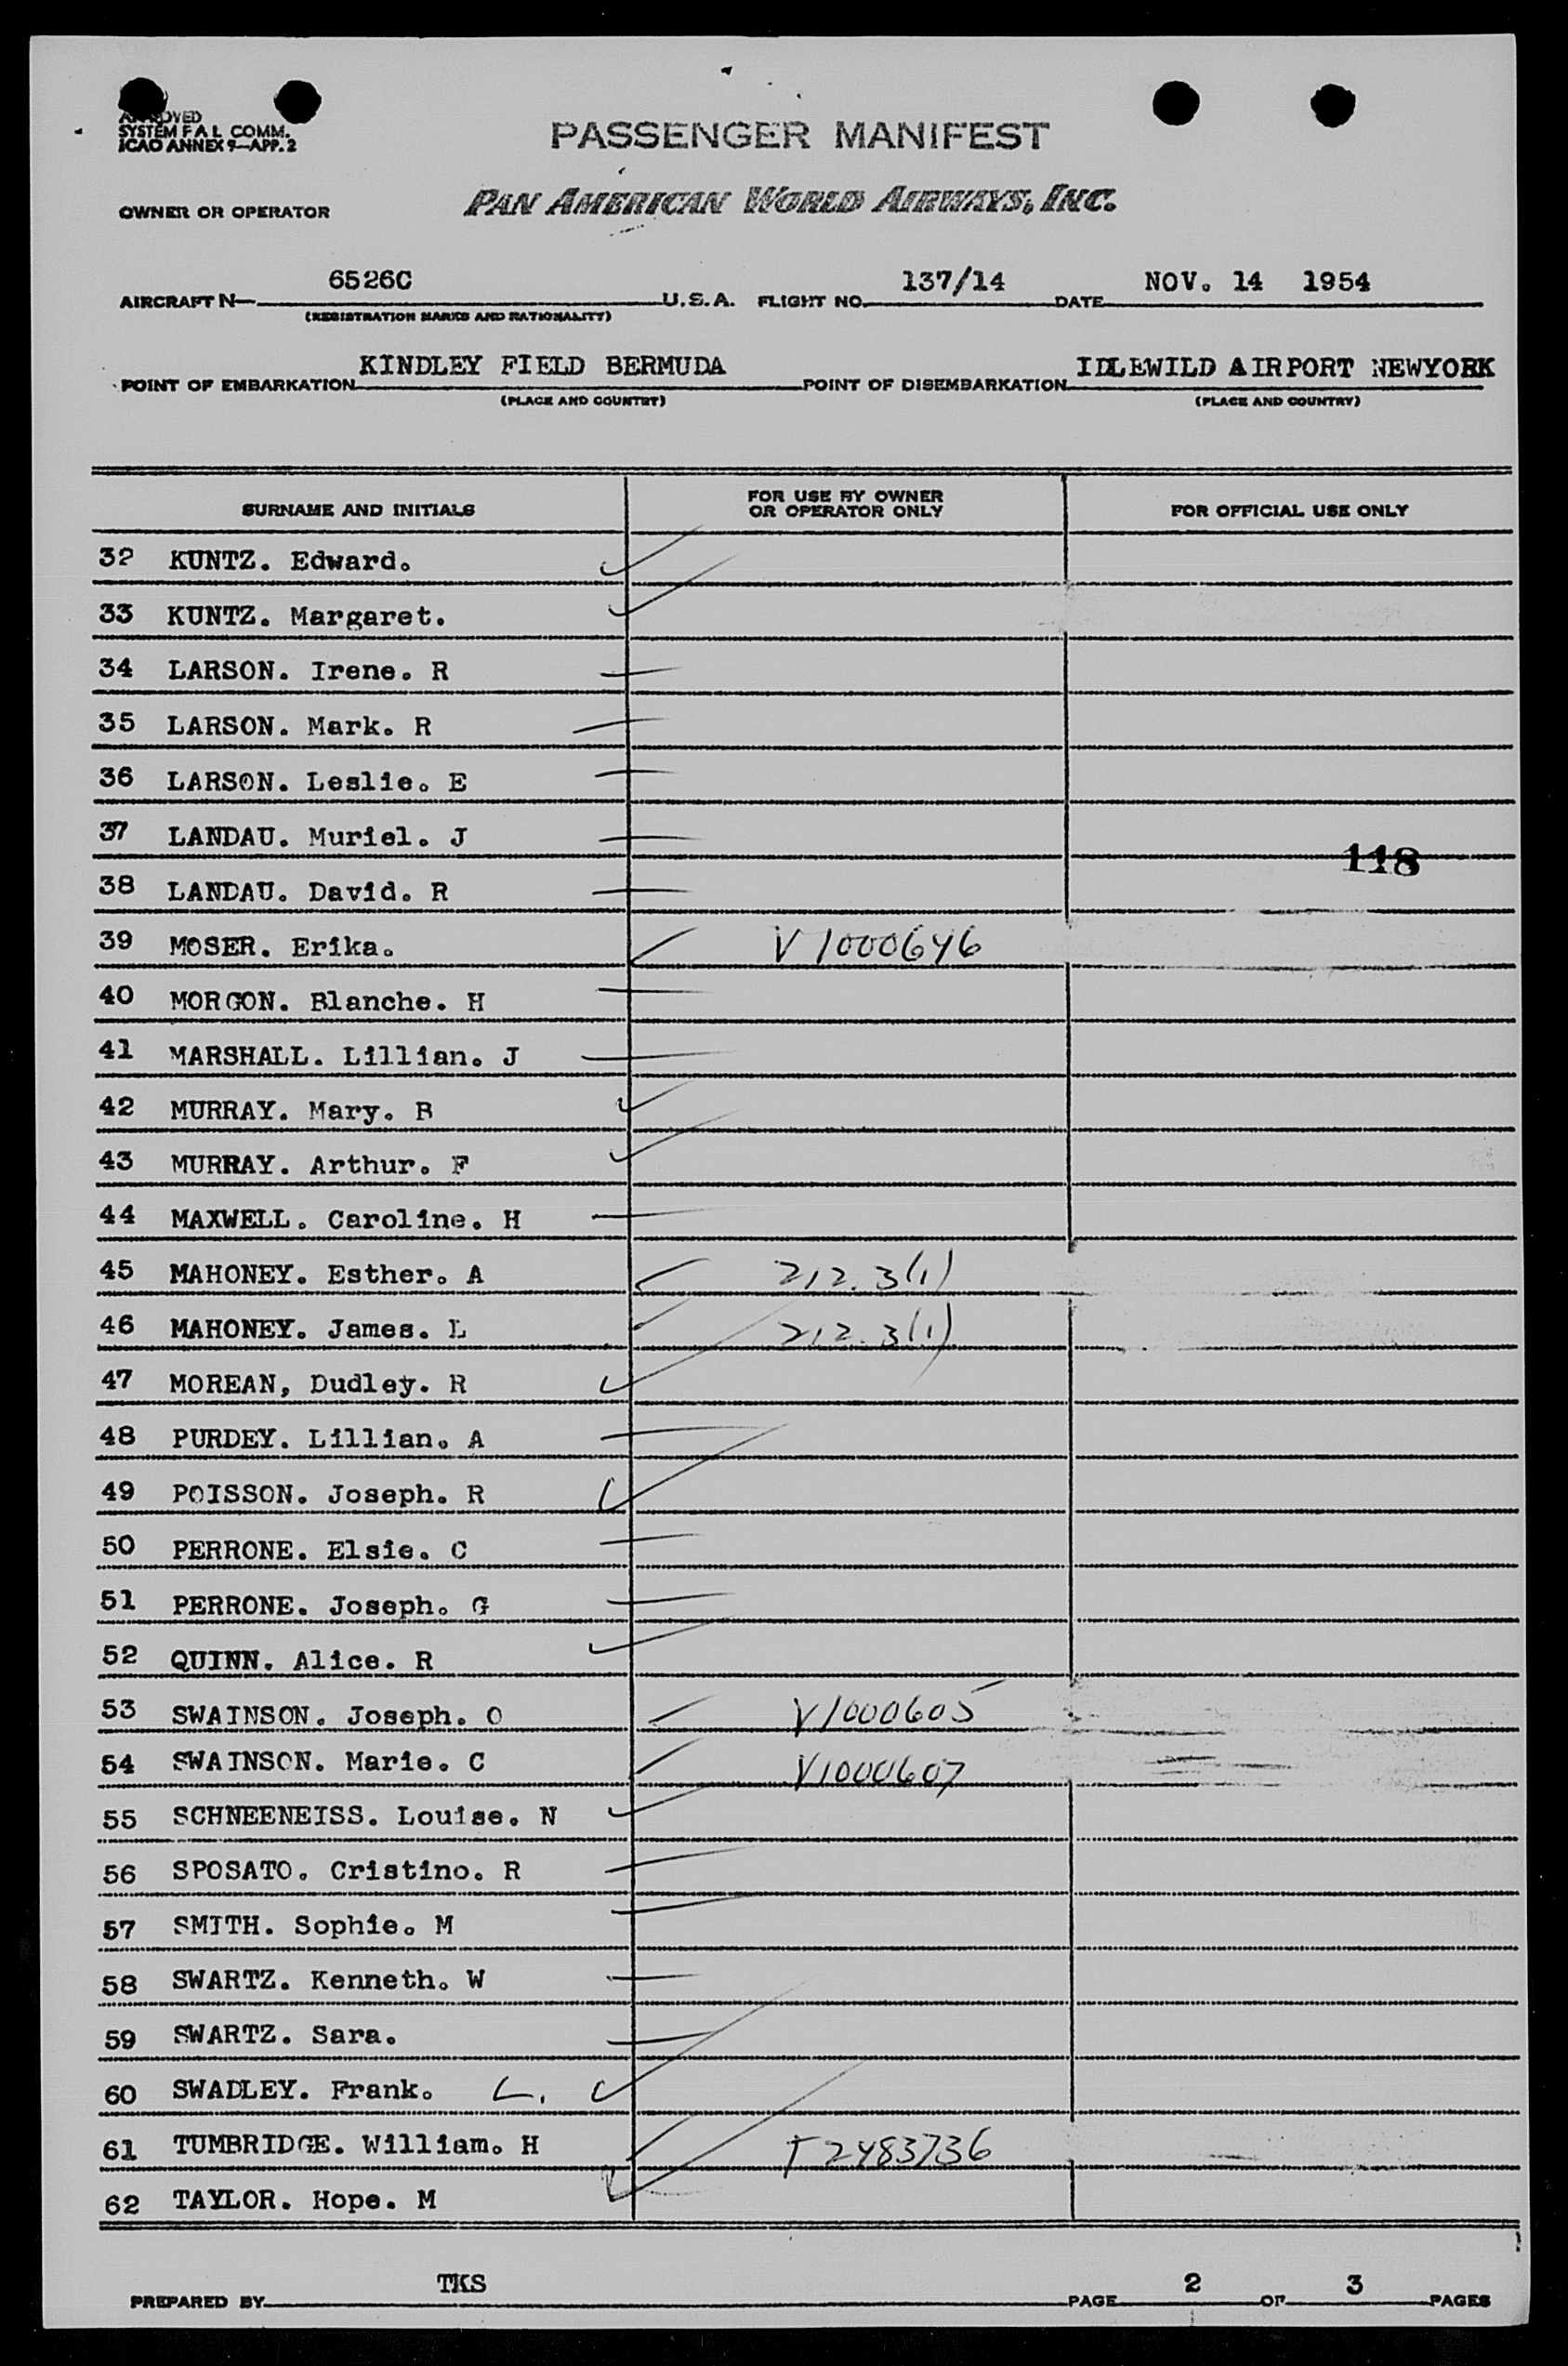 APPROVED
SYSTEM F A L COMM.
ICAO ANNEX 9—APP. 2
PASSENGER MANIFEST
OWNER OR OPERATOR PAN AMERICAN WORLD AIRWAYS, INC.
AIRCRAFT N— 6526C U.S.A. FLIGHT NO. 137/14 DATE NOV. 14 1954
(REGISTRATION MARKS AND NATIONALITY)
POINT OF EMBARKATION KINDLEY FIELD BERMUDA POINT OF DISEMBARKATION IDLEWILD AIRPORT NEWYORK
(PLACE AND COUNTRY) (PLACE AND COUNTRY)
SURNAME AND INITIALS FOR USE BY OWNER OR OPERATOR ONLY FOR OFFICIAL USE ONLY
32 KUNTZ. Edward.
33 KUNTZ. Margaret.
34 LARSON. Irene. R
35 LARSON. Mark. R
36 LARSON. Leslie. E
37 LANDAU. Muriel. J
118
38 LANDAU. David. R
39 MOSER. Erika. V1000646
40 MORGON. Blanche. H
41 MARSHALL. Lillian. J
42 MURRAY. Mary. B
43 MURRAY. Arthur. F
44 MAXWELL. Caroline. H
45 MAHONEY. Esther. A 212.3(1)
46 MAHONEY. James. L 212.3(1)
47 MOREAN, Dudley. R
48 PURDEY. Lillian. A
49 POISSON. Joseph. R
50 PERRONE. Elsie. C
51 PERRONE. Joseph. G
52 QUINN. Alice. R
53 SWAINSON. Joseph. O V1000605
54 SWAINSON. Marie. C V1000607
55 SCHNEENEISS. Louise. N
56 SPOSATO. Cristino. R
57 SMITH. Sophie. M
58 SWARTZ. Kenneth. W
59 SWARTZ. Sara.
60 SWADLEY. Frank. L.
61 TUMBRIDGE. William. H T2483736
62 TAYLOR. Hope. M
PREPARED BY TKS PAGE 2 OF 3 PAGES